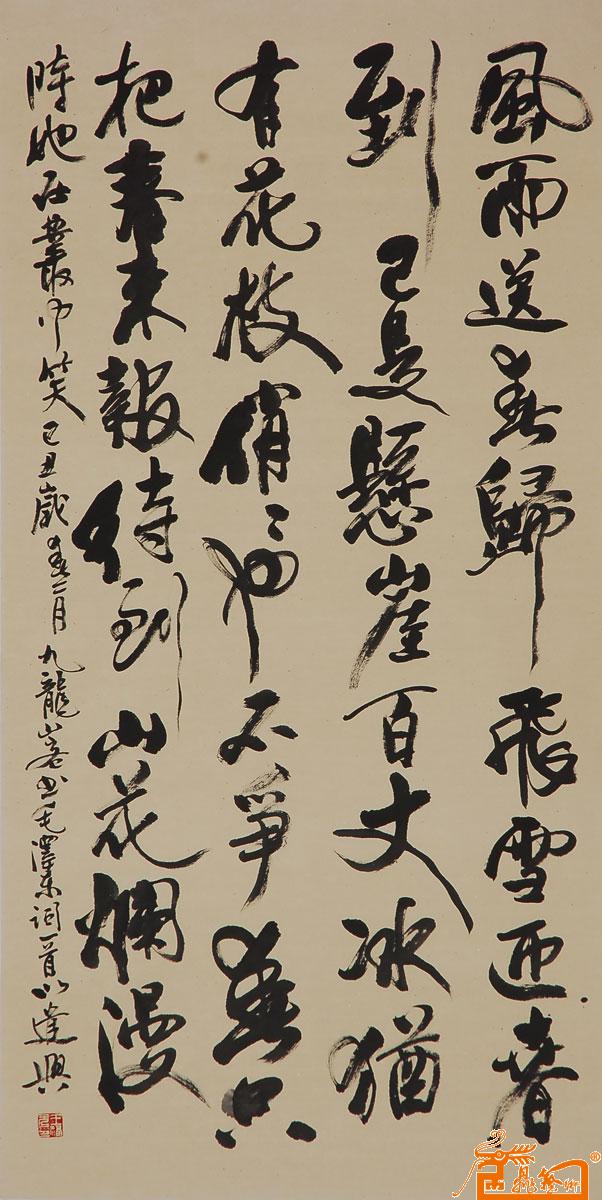 風雨送春歸飛雪迎春
到已是懸崖百丈冰猶
有花枝俏〻也不爭春只
把春來報待到山花爛漫
時她在叢中笑己丑歲春二月九龍山客书毛澤东词一首以達興